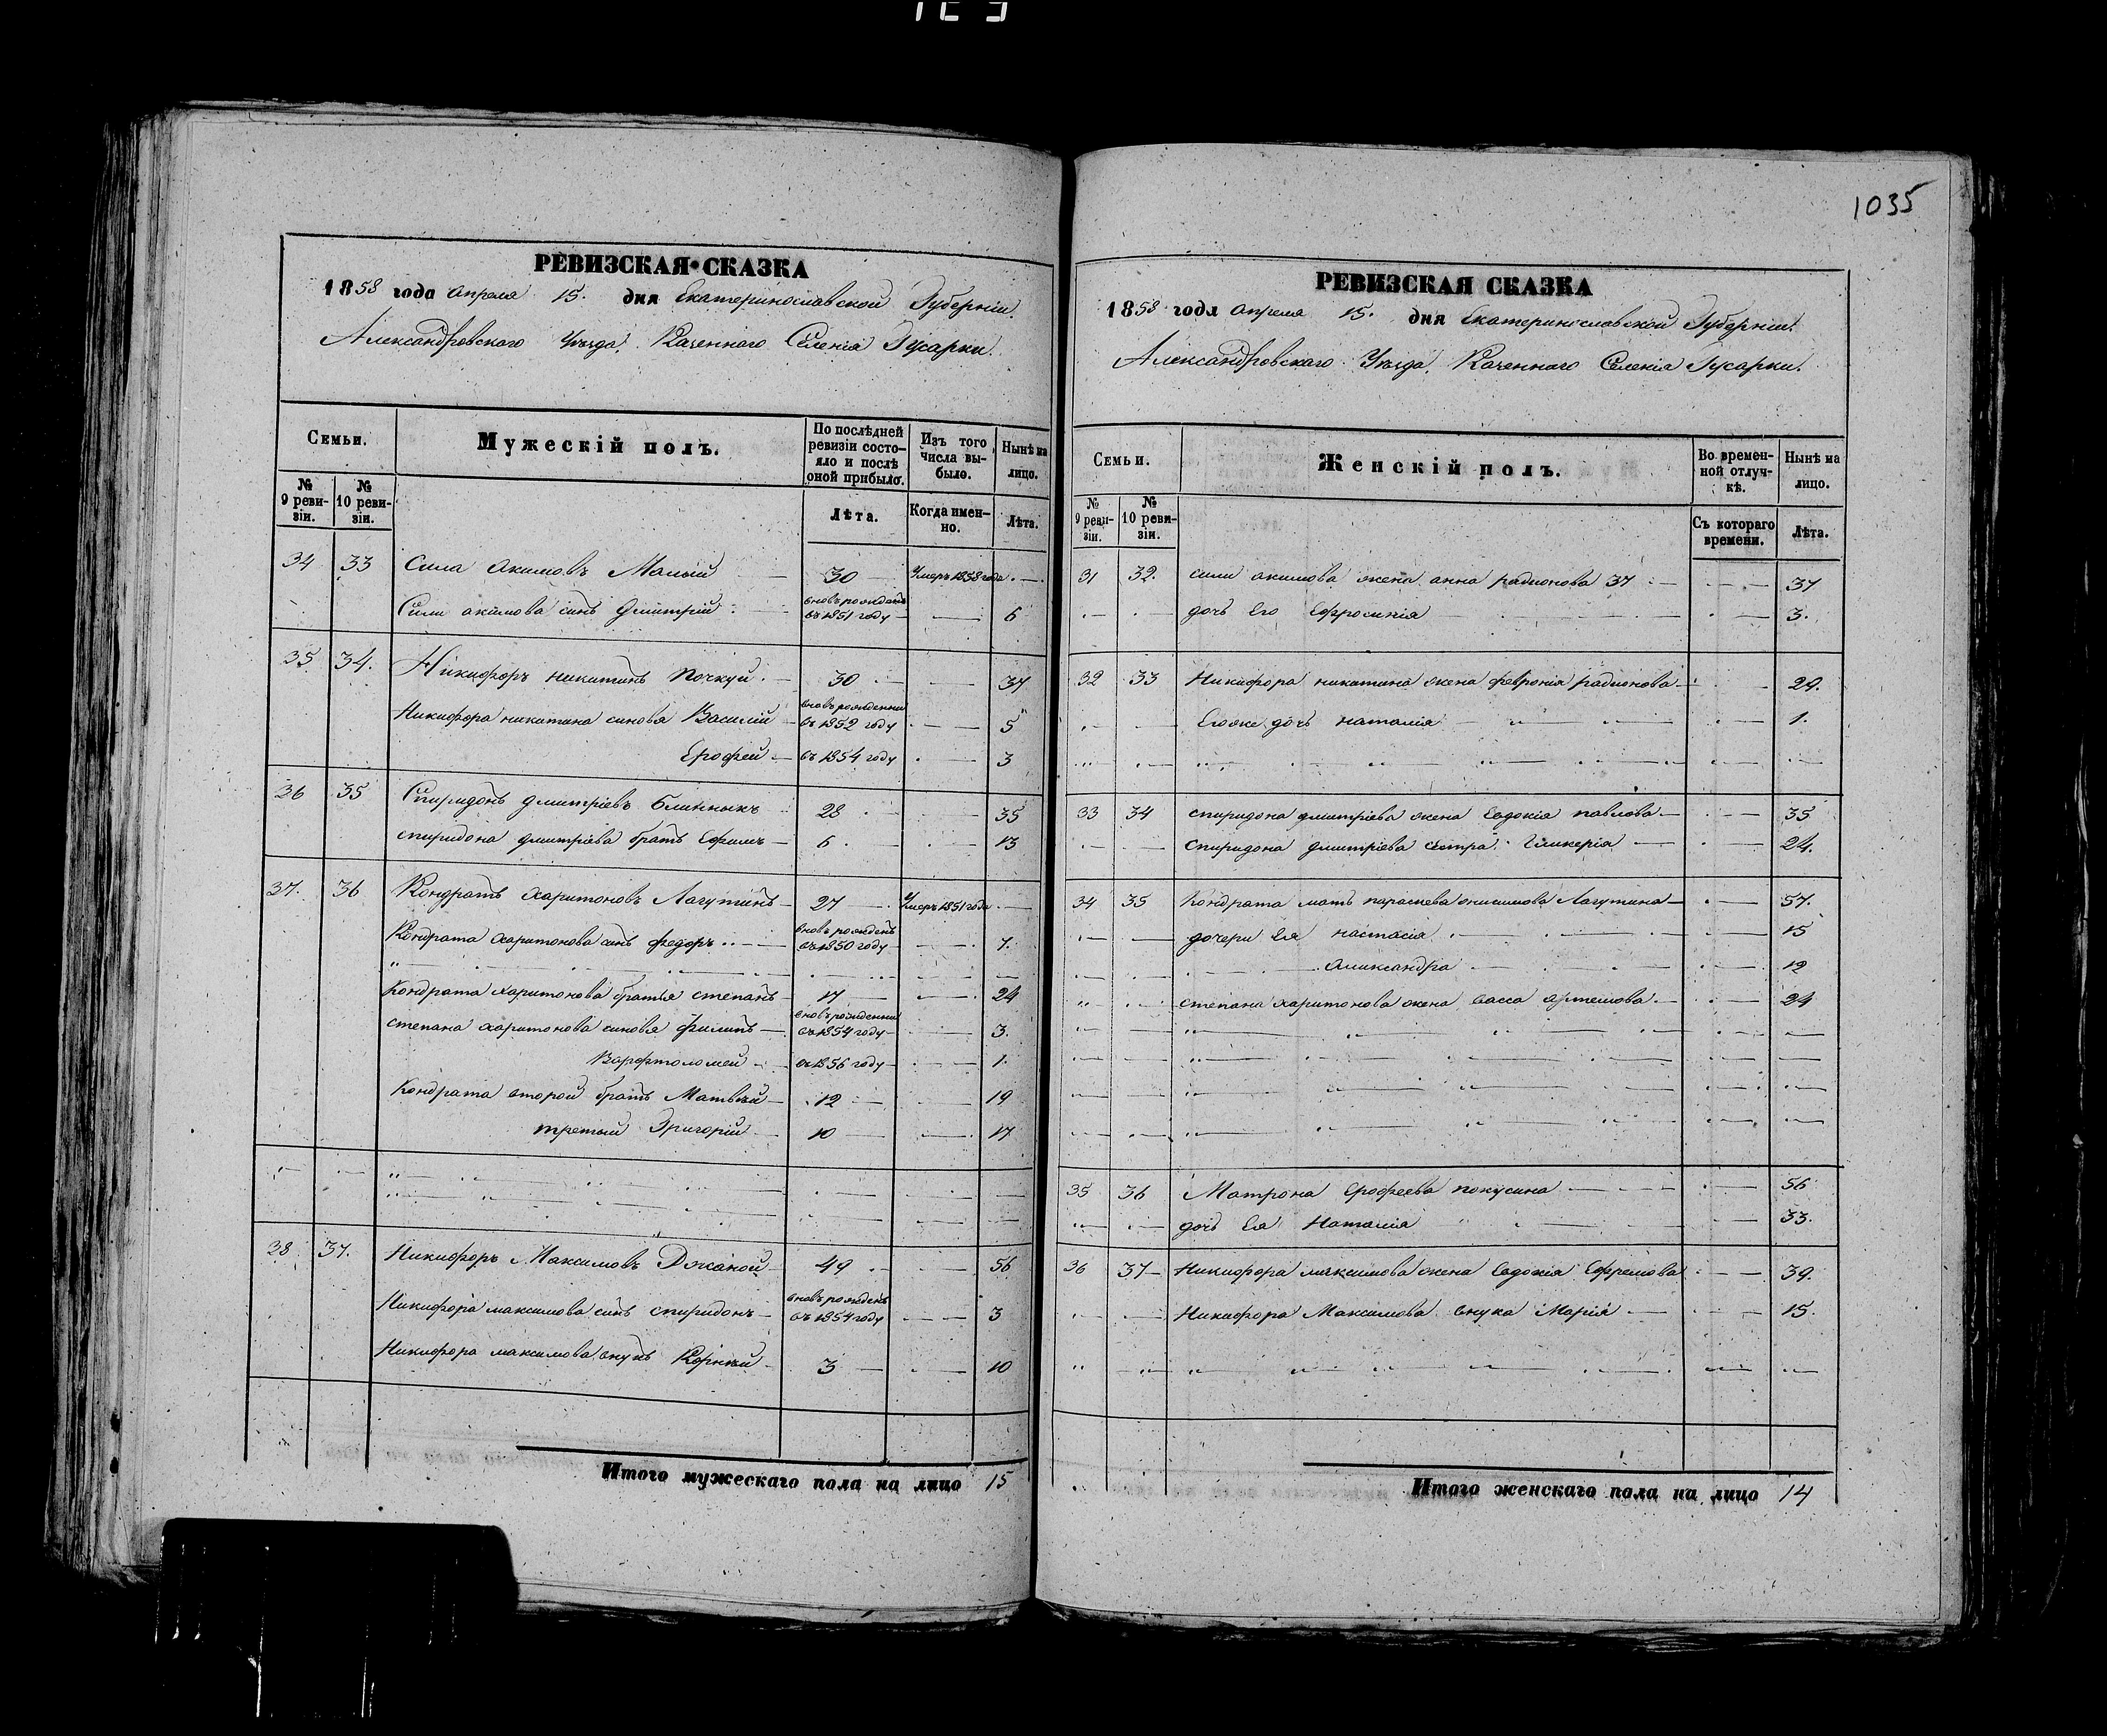 1035
РЕВИЗСКАЯ СКАЗКА
1858 года Апреля 15. дня Екатеринославской Губерніи.
Александровскаго Уѣзда. Казеннаго Селенія Гусарки.
Семьи.
Мужескій полъ.
По послѣдней ревизіи состояло и послѣ оной прибыло.
Изъ того числа выбыло.
Нынѣ на лицо.
№ 9 ревизіи.
№ 10 ревизіи.
Лѣта.
Когда именно.
Лѣта.
34 33 Сила Акимовъ Малый — 30 — Умеръ 1858 года . —
Силы акимова сынъ Дмитрій — вновь рожденъ въ 1851 году — 6
35 34. Никифоръ никитинъ Почкуй — 30 — 37
Никифора никитина сыновья Василій — вновь рожденны въ 1852 году — 5
Ерофей — въ 1854 году — 3
36 35 Спиридонъ дмитріевъ Блинныкъ 28 — 35
спиридона дмитріева братъ Ефимъ — 6 — 13
37. 36 Кондратъ харитоновъ Лагутинъ — 27 — Умеръ 1851 года —
Кондрата харитонова сынъ федоръ — вновь рожденъ въ 1850 году — 7.
Кондрата харитонова братья степанъ — 17 — 24
степана харитонова сыновья филипъ — вновь рожденны въ 1854 году — 3.
Варфтоломей — въ 1856 году — 1.
Кондрата второй братъ Матвѣй — 12 — 19
третый Григорій — 10 — 17
38 37. Никифоръ Максимовъ Джаной — 49 — 56
Никифора максимова сынъ спиридонъ — вновь рожденъ въ 1854 году — 3
Никифора максимова внукъ Корнѣй — 3 — 10
Итого мужескаго пола на лицо 15
РЕВИЗСКАЯ СКАЗКА
1858 года Апреля 15. дня Екатеринославской Губерніи.
Александровскаго Уѣзда. Казеннаго Селенія Гусарки.
Семьи.
Женскій полъ.
Во временной отлучкѣ.
Нынѣ на лицо.
№ 9 ревизіи.
№ 10 ревизіи.
Съ котораго времени.
Лѣта.
31 32. силы акимова жена анна радионова 37 — 37
дочь Его Ефросинія — 3.
32 33 Никифора никитина жена феврония радионова — 29.
Егоже дочь наталия — 1.
33 34 спиридона дмитріева жена Евдокія павлова — 35
спиридона дмитріева сестра Гликерія — 24.
34 35 Кондрата мать параскева онисимова Лагутина — 57.
дочери Ея настасія — 15
Александра — 12
степана харитонова жена васса артемова — 24
35 36 Матрона Ерофеева покусина — 56
дочь Ея Наталія — 33.
36 37 — Никифора максимова жена Евдокія Ефремова — 39.
Никифора Максимова внука Марія — 15.
Итого женскаго пола на лицо 14